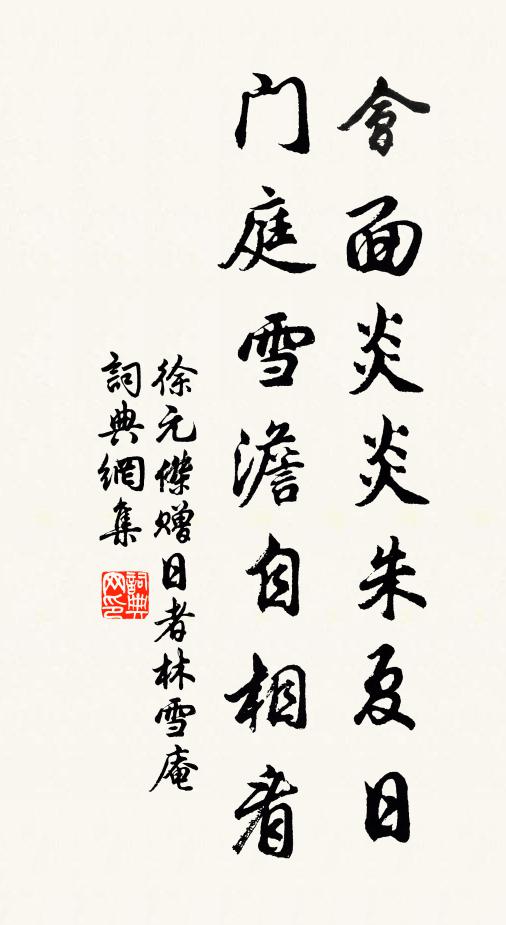 會面炎炎朱夏日
门庭雪澹自相看
徐元傑赠日者林雪庵
詞典網集
詞典网印